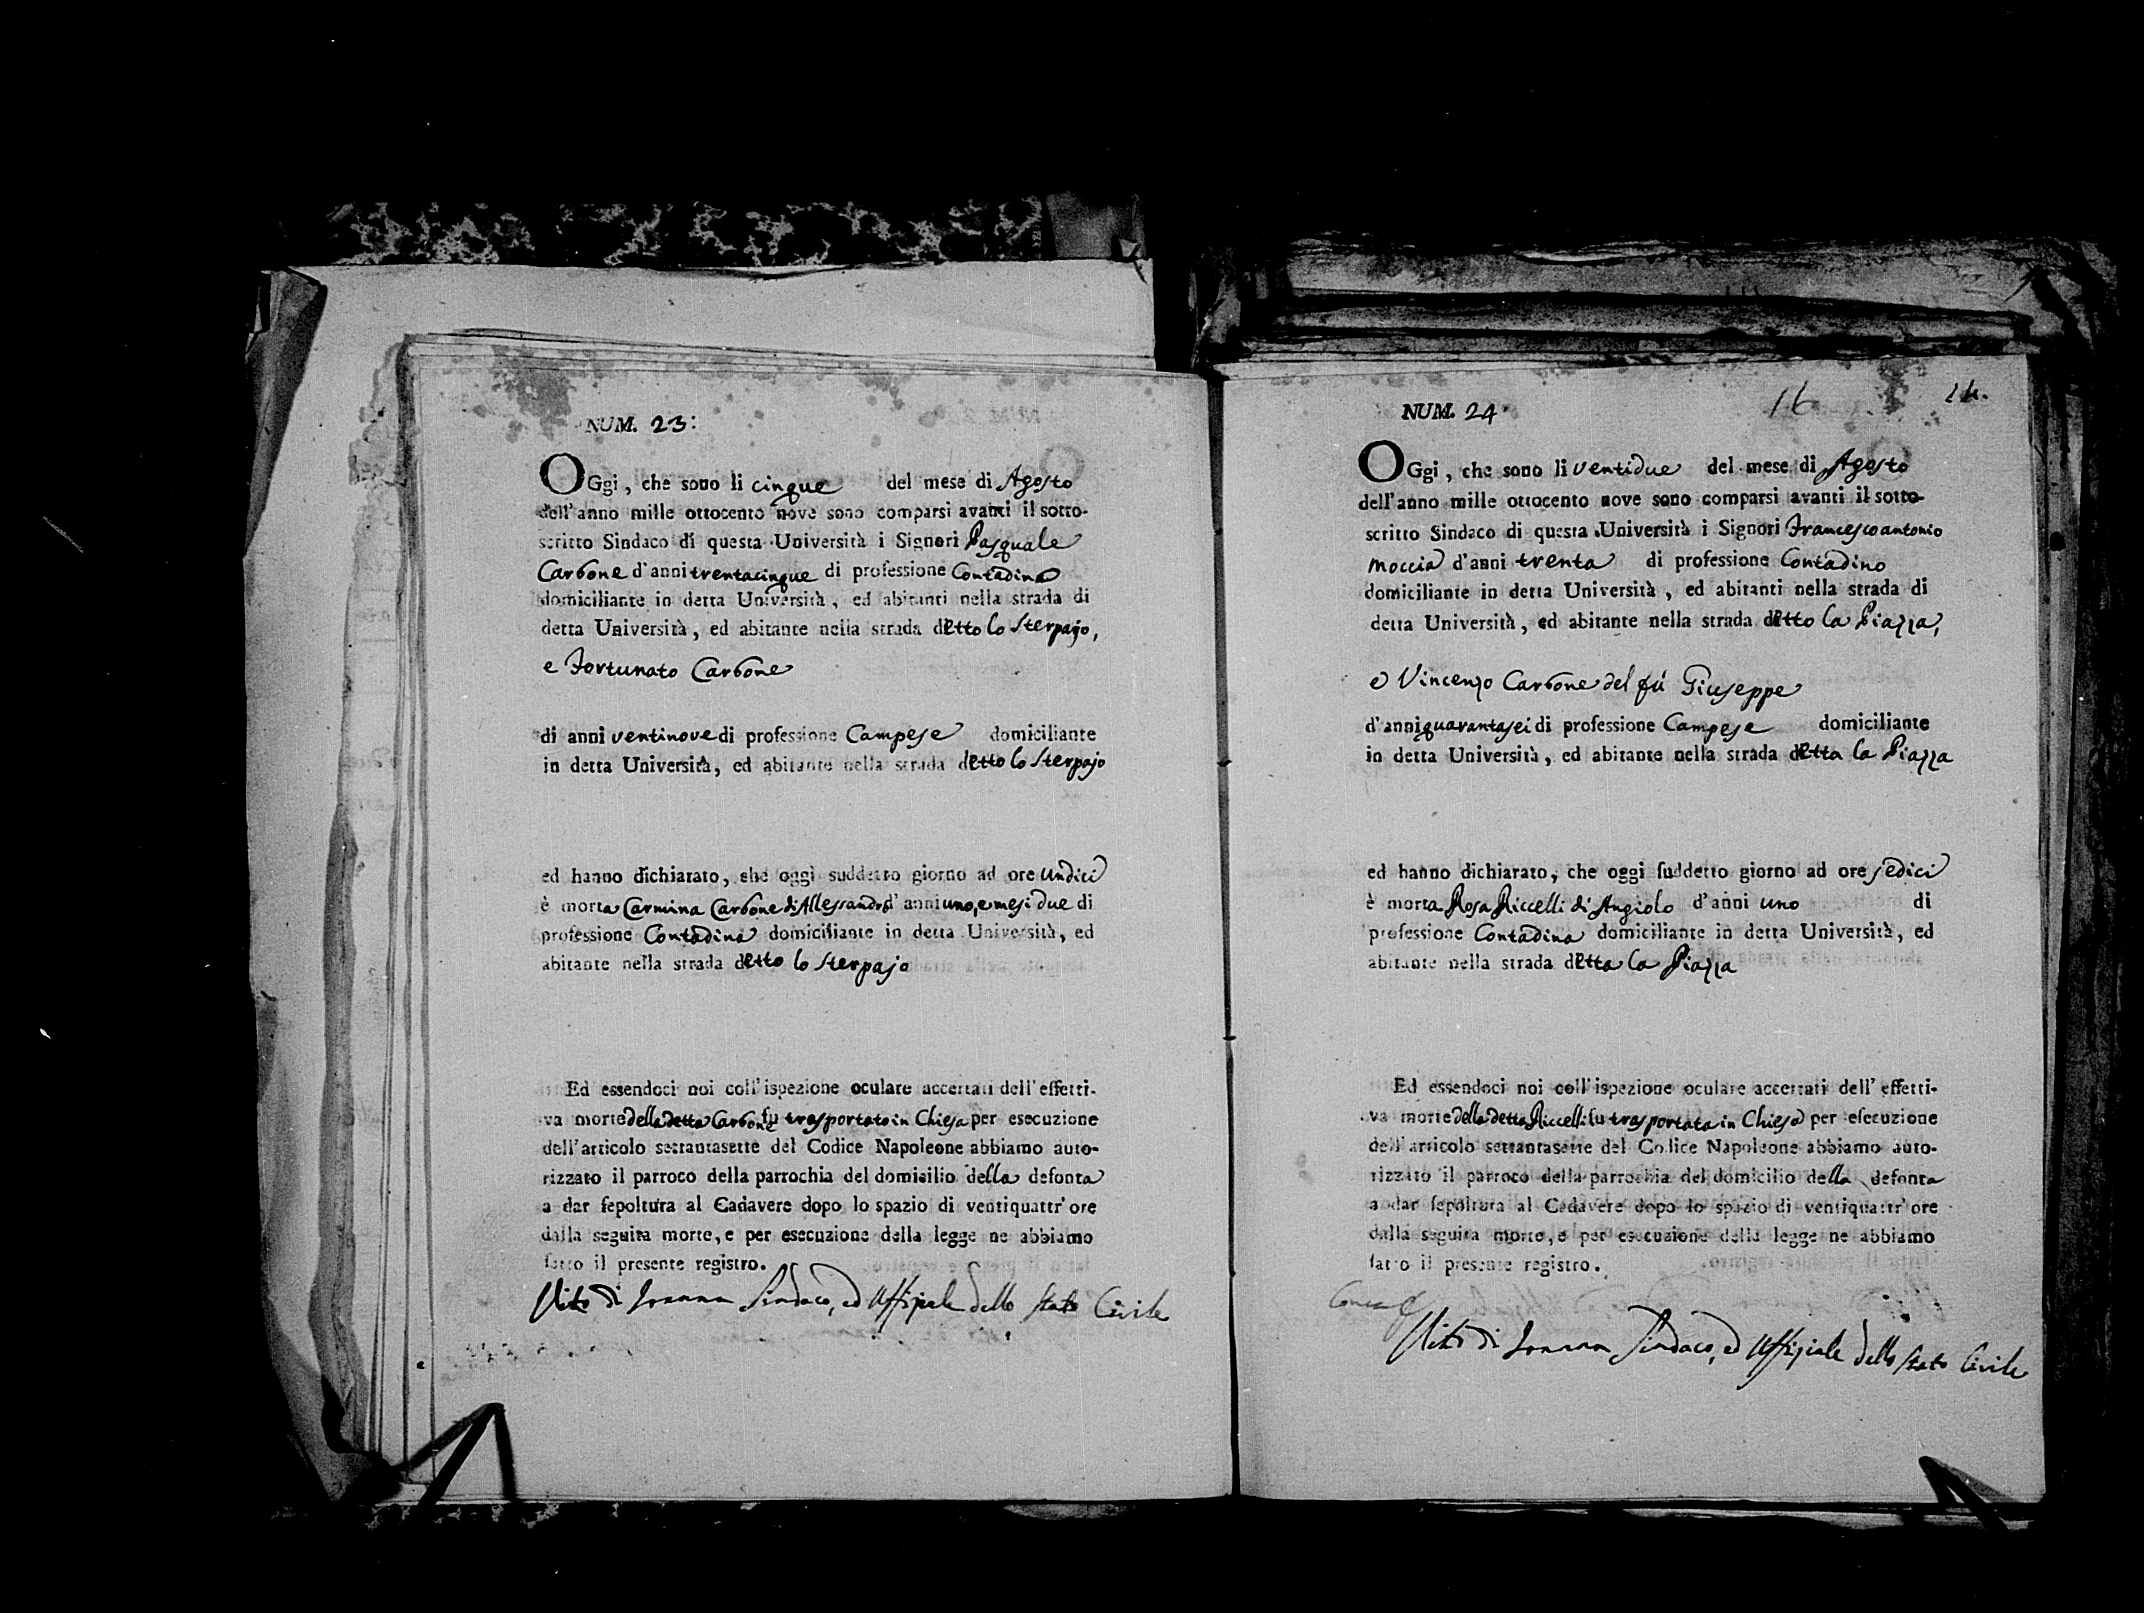 NUM. 23:
OGgi, che sono li cinque del mese di Agosto
dell'anno mille ottocento nove sono comparsi avanti il sotto-
scritto Sindaco di questa Università i Signori Pasquale
Carbone d'anni trentacinque di professione Contadino
domiciliante in detta Università, ed abitanti nella strada di
detta Università, ed abitante nella strada detto lo Sterpajo,
e Fortunato Carbone
di anni ventinove di professione Campese domiciliante
in detta Università, ed abitante nella strada detto lo Sterpajo
ed hanno dichiarato, che oggi suddetto giorno ad ore undici
è morta Carmina Carbone di Allessandro d'anni uno, e mesi due di
professione Contadina domiciliante in detta Università, ed
abitante nella strada detto lo Sterpajo
Ed essendoci noi coll'ispezione oculare accertati dell'effetti-
va morte della detta Carbone fu trasportato in Chiesa per esecuzione
dell'articolo settantasette del Codice Napoleone abbiamo auto-
rizzato il parroco della parrochia del domisilio della defonta
a dar sepoltura al Cadavere dopo lo spazio di ventiquattr'ore
dalla seguita morte, e per esecuzione della legge ne abbiamo
fatto il presente registro.
Vito di Ioanna Sindaco, ed Uffiziale dello Stato Civile
NUM. 24
16
OGgi, che sono li ventidue del mese di Agosto
dell'anno mille ottocento nove sono comparsi avanti il sotto-
scritto Sindaco di questa Università i Signori Francescoantonio
Moccia d'anni trenta di professione Contadino
domiciliante in detta Università, ed abitanti nella strada di
detta Università, ed abitante nella strada detto la Piazza,
e Vincenzo Carbone del fù Giuseppe
d'anni quarantasei di professione Campese domiciliante
in detta Università, ed abitante nella strada detta la Piazza
ed hanno dichiarato, che oggi suddetto giorno ad ore sedici
è morta Rosa Riccelli di Angiolo d'anni uno di
professione Contadina domiciliante in detta Università, ed
abitante nella strada detta la Piazza
Ed essendoci noi coll'ispezione oculare accertati dell'effetti-
va morte della detta Riccelli fu trasportata in Chiesa per esecuzione
dell'articolo settantasette del Codice Napoleone abbiamo auto-
rizzato il parroco della parrochia del domicilio della defonta
a dar sepoltura al Cadavere dopo lo spazio di ventiquattr'ore
dalla seguita morte, e per esecuzione della legge ne abbiamo
fatto il presente registro.
Vito di Ioanna Sindaco, ed Uffiziale dello Stato Civile